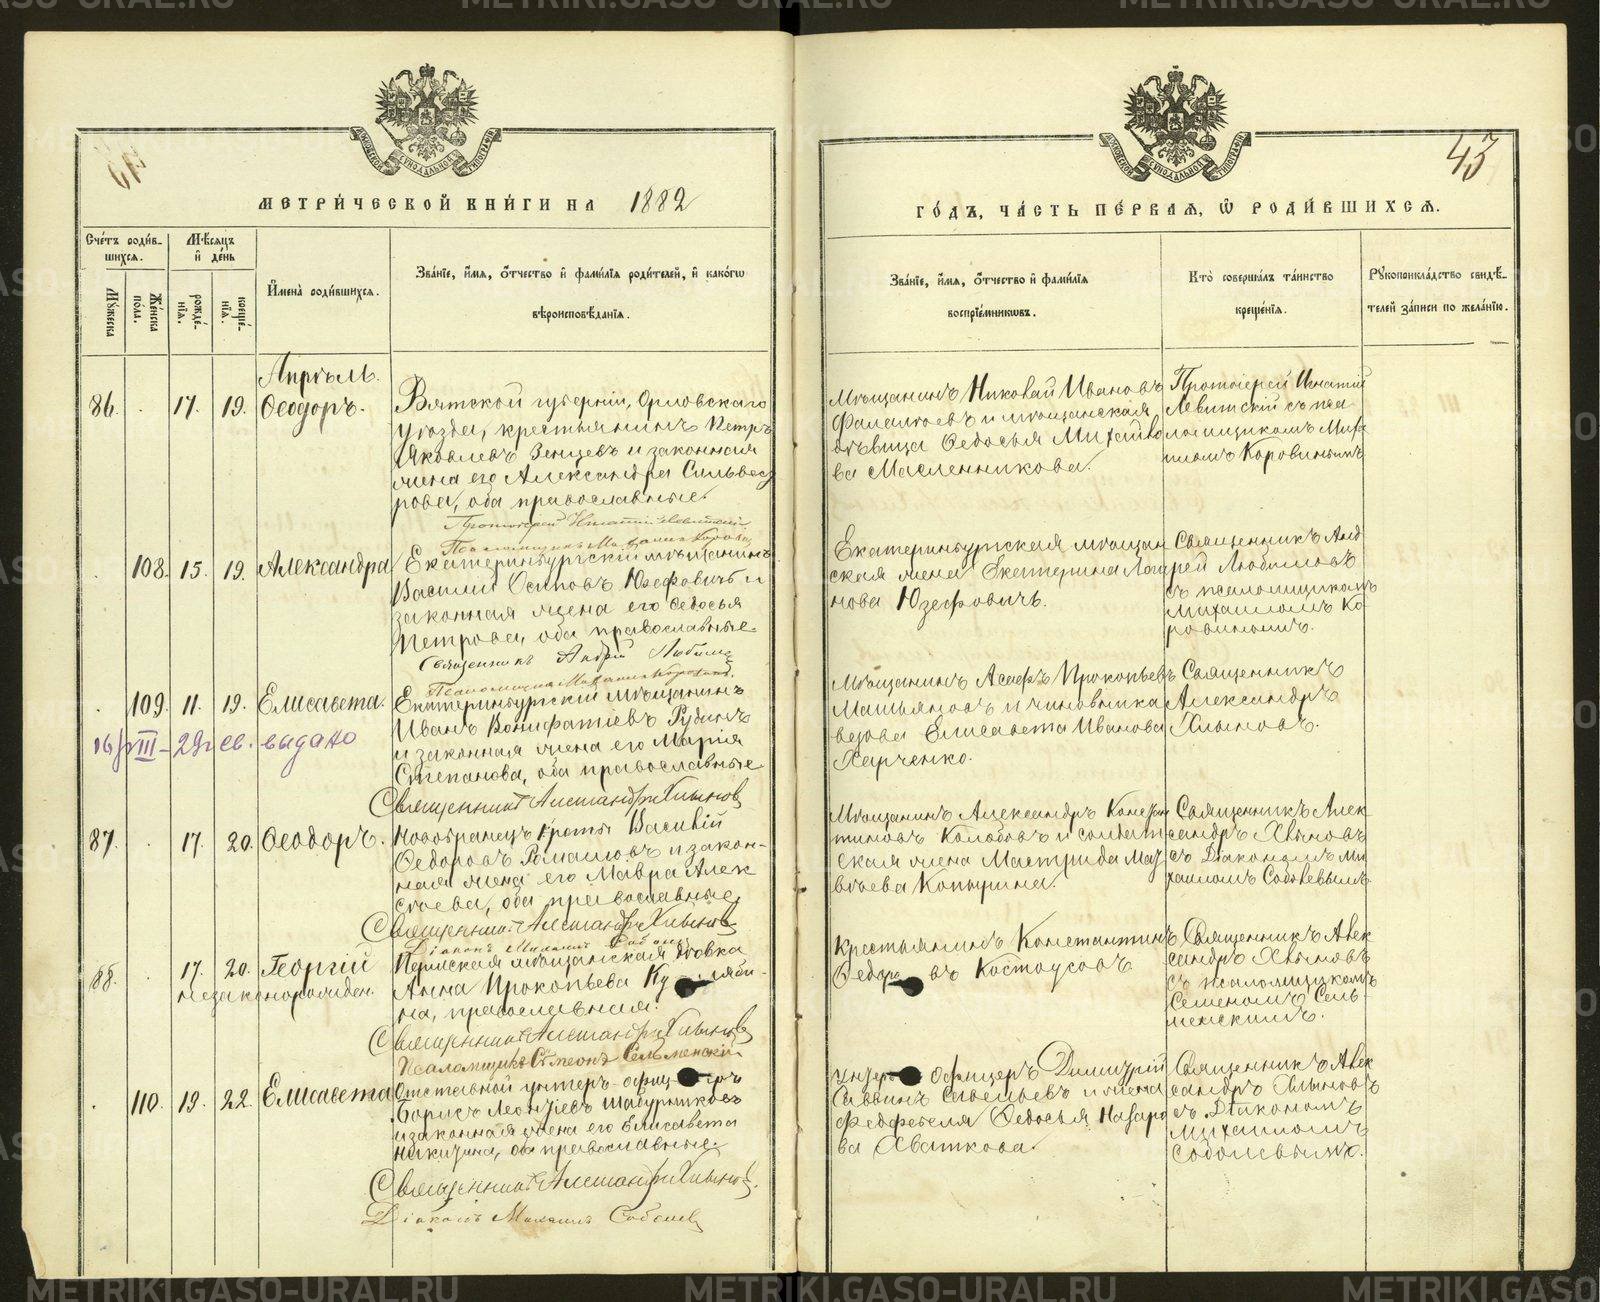 METRIKI.GASO-URAL.RU
43
МОСКОВСКОЙ СѴНОДАЛЬНОЙ ТИПОГРАФІИ
МЕТРИ́ЧЕСКОЙ КНИ́ГИ НА 1882
Сче́тъ роди́в-
шихся.
Мѣ́сяцъ
и҆ де́нь
Мꙋ́жеска
Же́нска
по́ла.
рожде́-
нїѧ.
креще́-
нїѧ.
И҆мена̀ роди́вшихся.
Зва́нїе, и҆́мя, ѻ҆́тчество и҆ фами́лїя роди́телей, и҆ како́гѡ
вѣроисповѣ́данїя.
Апрѣль.
86. 17. 19. Ѳеодоръ.
Вятской губерніи, Орловскаго
уѣзда, крестьянинъ Петръ
Яковлевъ Зенцевъ и законная
жена его Александра Сильвест
рова, оба православные.
Протоіерей Игнатій Левитскій
Псаломщикъ Михаилъ Коровин
108. 15. 19. Александра
Екатеринбургскій мѣщанинъ
Василій Осиповъ Юзефовичъ и
законная жена его Ѳедосья
Петрова, оба православные.
Священникъ Андрей Любимовъ
Псаломщикъ Михаилъ Коровинъ.
109. 11. 19. Елисавета.
Екатеринбургскій мѣщанинъ
Иванъ Вонифатіевъ Рубинъ
и законная жена его Марія
Степанова, оба православные
16/VIII – 29г св. выдано
Священникъ Александръ Хлыновъ
87. 17. 20. Ѳеодоръ.
Новобранецъ Василій
Ѳедоровъ Ромашовъ и закон-
ная жена его Мавра Алек
сѣева, оба православные.
Священникъ Александръ Хлыновъ
Діаконъ Михаилъ Соболевъ
88. 17. 20. Георгій
незаконнорожден.
Пермская мѣщанская дѣвка
Анна Прокопьева
на, православная.
Священникъ Александръ Хлыновъ
Псаломщикъ Симеонъ Сельменскій
110. 19. 22. Елисавета
Отставной унтеръ-офицеръ
Борисъ Леонтіевъ Шабурниковъ
и законная жена его Елисавета
Никитина, оба православные.
Священникъ Александръ Хлыновъ.
Діаконъ Михаилъ Соболевъ
МОСКОВСКОЙ СѴНОДАЛЬНОЙ ТИПОГРАФІИ
ГО́ДЪ, ЧА́СТЬ ПЕ́РВАЯ, Ѡ҆ РОДИ́ВШИХСЯ.
Зва́нїе, и҆́мя, ѻ҆́тчество и҆ фами́лїя
воспрїе́мникѡвъ.
Кто̀ соверша́лъ та́инство
креще́нїя.
Рꙋкоприкла́дство свидѣ́-
телей за́писи по жела́нїю.
Мѣщанинъ Николай Ивановъ
Фалалѣевъ и мѣщанская
дѣвица Ѳедосья Михайло
ва Масленникова.
Протоіерей Игнатій
Левитскій съ пса
ломщикомъ Миха
иломъ Коровинымъ
Екатеринбургская мѣщан
ская жена Екатерина Логи
нова Юзефовичъ.
Священникъ Анд
рей Любимовъ
съ псаломщикомъ
Михаиломъ Ко-
ровинымъ.
Мѣщанинъ Асафъ Прокопьевъ
и чиновника
Елисавета Иванова
Харченко.
Священникъ
Александръ
Хлыновъ.
Мѣщанинъ Александръ Констан
тиновъ Колобовъ и солдат
ская жена Мастридія Мат
вѣева Копырина.
Священникъ Алек
сандръ Хлыновъ
съ Діакономъ Ми
хаиломъ Соболевымъ.
Крестьянинъ Константинъ
Ѳедоровъ Костоусовъ
Священникъ Алек
сандръ Хлыновъ
съ псаломщикомъ
Семеномъ Сель-
менскимъ.
Унтеръ офицеръ Димитрій
Саввинъ Савельевъ и жена
фельдфебеля Ѳедосья Назаро
ва Хваткова.
Священникъ Алек
сандръ Хлыновъ
съ Діакономъ
Михаиломъ
Соболевымъ.
METRIKI.GASO-URAL.RU